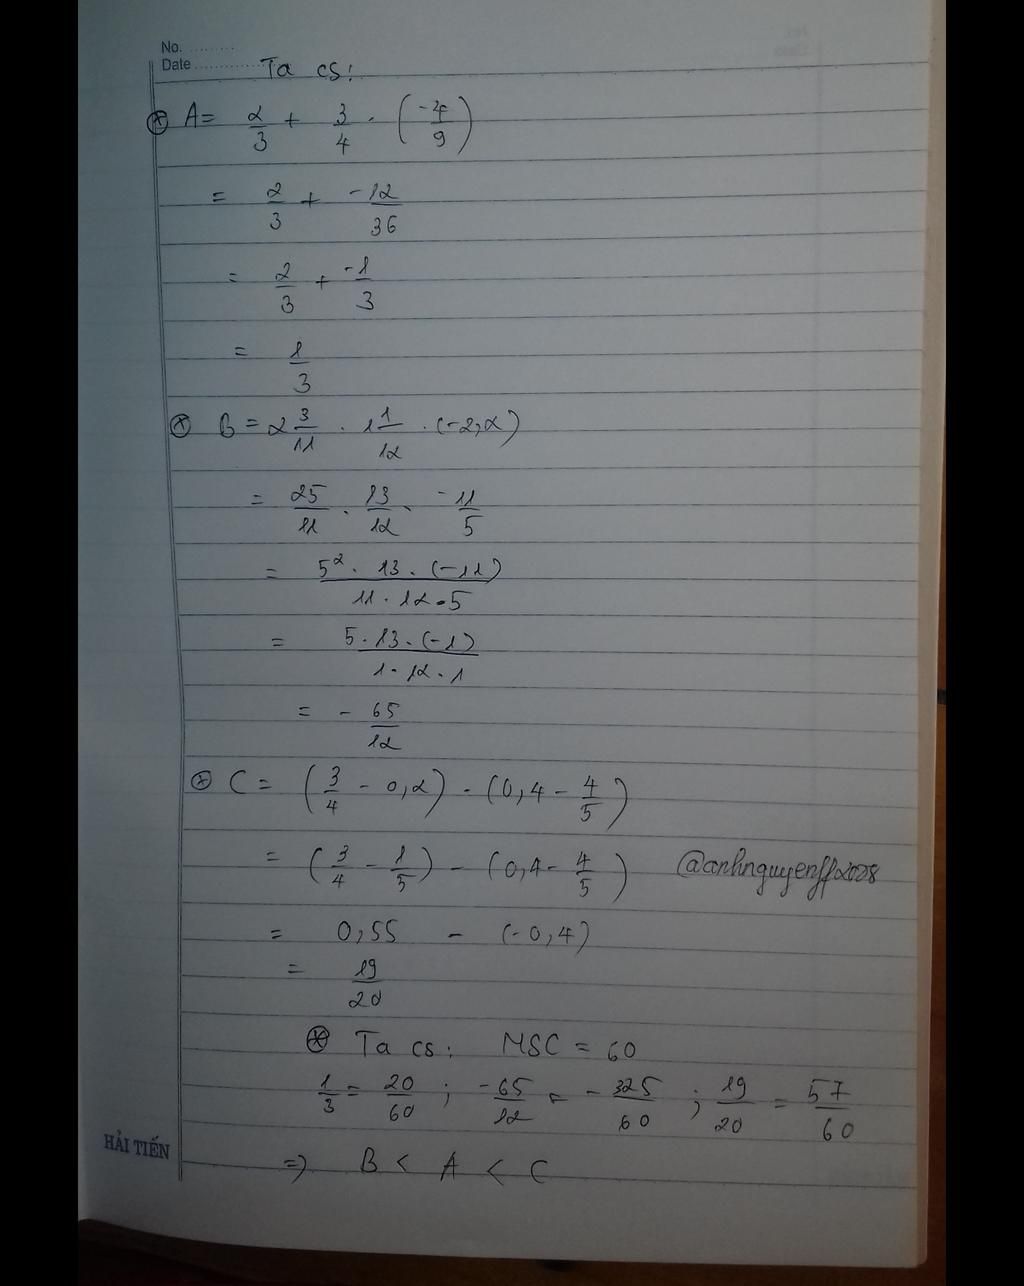 No. .........
Date ............ Ta có:
⊛ A = 2/3 + 3/4 . (-4/9)
= 2/3 + -12/36
= 2/3 + -1/3
= 1/3
⊛ B = 2 3/11 . 1 1/12 . (-2,2)
= 25/11 . 13/12 . -11/5
= 5² . 13 . (-11) / 11 . 12 . 5
= 5 . 13 . (-1) / 1 . 12 . 1
= - 65/12
⊛ C = (3/4 - 0,2) - (0,4 - 4/5)
= (3/4 - 1/5) - (0,4 - 4/5) @anhnguyenff2008
= 0,55 - (-0,4)
= 19/20
⊛ Ta có: MSC = 60
1/3 = 20/60 ; -65/12 = - 325/60 ; 19/20 = 57/60
HẢI TIẾN
=> B < A < C